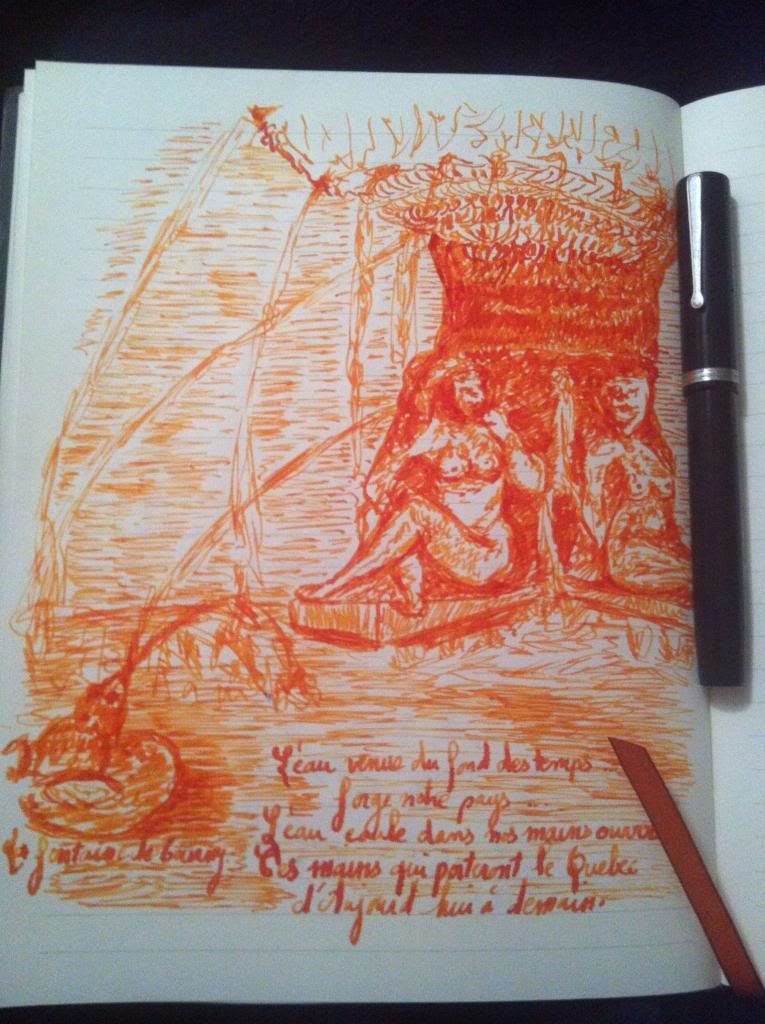 L'eau venue du fond des temps...
forge notre pays...
L'eau coule dans nos mains ouver
Ces mains qui porteront le Quebec
d'Aujourd'hui à demain.
La fontaine de